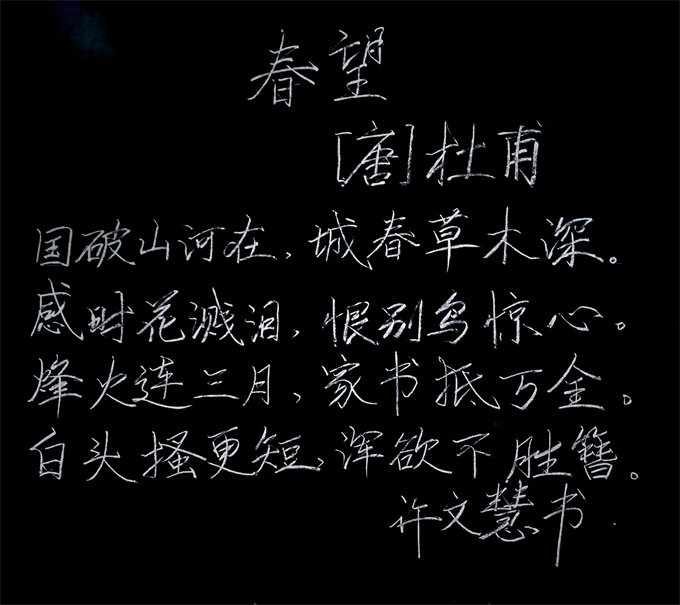 春望
[唐]杜甫
国破山河在，城春草木深。
感时花溅泪，恨别鸟惊心。
烽火连三月，家书抵万金。
白头搔更短，浑欲不胜簪。
许文慧书